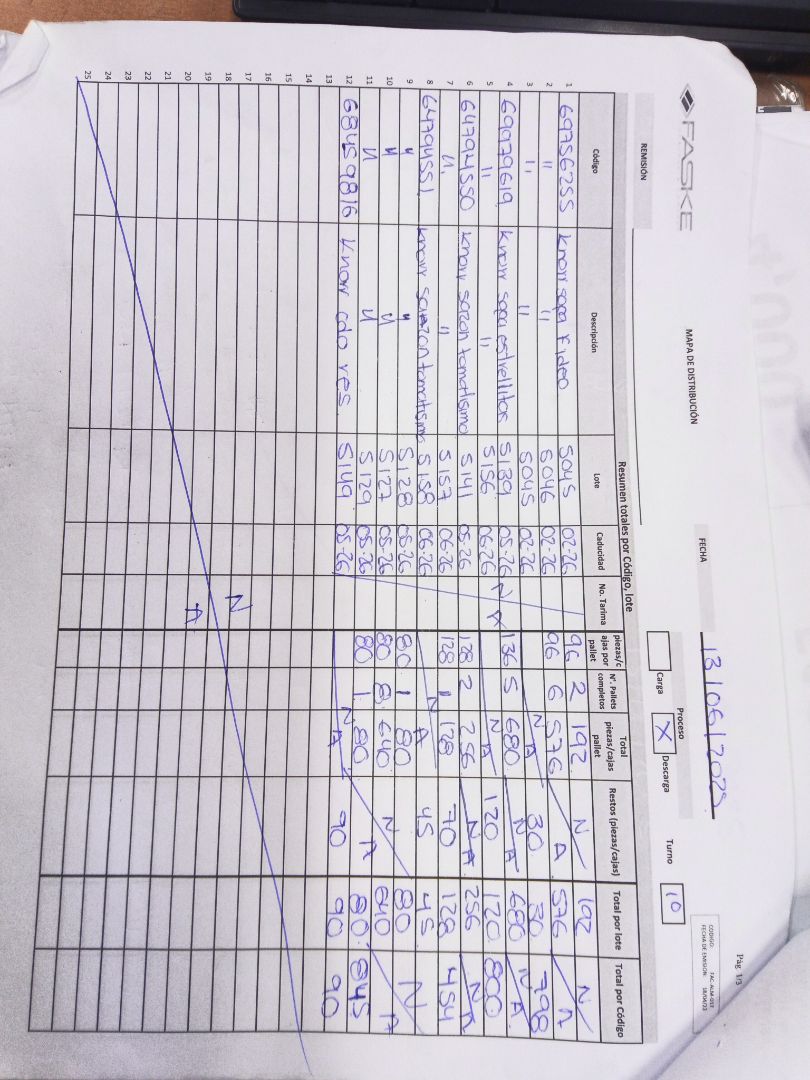 FASKE
MAPA DE DISTRIBUCIÓN
Pág 1/3
CODIGO: FAC-ALM-003
FECHA DE EMISION: 18/04/23
FECHA 13/06/2025
REMISIÓN
Proceso
Carga X Descarga
Turno 10
Resumen totales por Código, lote
Código Descripción Lote Caducidad No. Tarima piezas/cajas por pallet N°. Pallets completos Total piezas/cajas pallet Restos (piezas/cajas) Total por lote Total por Código
1 69756255 Knorr sopa Fideo 5045 02-26 96 2 192 N 192 N
2 " " 5046 02-26 96 6 576 A 576 A
3 " " 5045 02-26 N 30 30 798
4 69979619 Knorr sopa estrellitas 5139 05-26 N 136 5 680 N A 680 N A
5 " " 5156 06-26 A N A 120 120 800
6 64794550 Knorr sazon tomatisimo 5141 05-26 128 2 256 N A 256 N A
7 " " 5157 06-26 128 1 128 70 128 454
8 64794551 Knorr sazon tomatisimo 5158 06-26 N A 45 45 N
9 " " 5128 05-26 80 1 80 N 80
10 " " 5127 05-26 80 8 640 A 640 A
11 " " 5129 05-26 80 1 80 80 845
12 68459816 Knorr cdo res 5149 05-26 N A 90 90 90
13
14
15
16
17 N
18
19 A
20
21
22
23
24
25